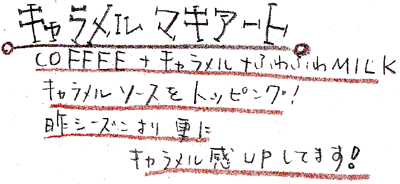 キャラメル マキアート
COFFEE + キャラメル + ふわふわ MILK
キャラメル ソースを トッピング!
昨シーズンより 更に
キャラメル感 UP してます!